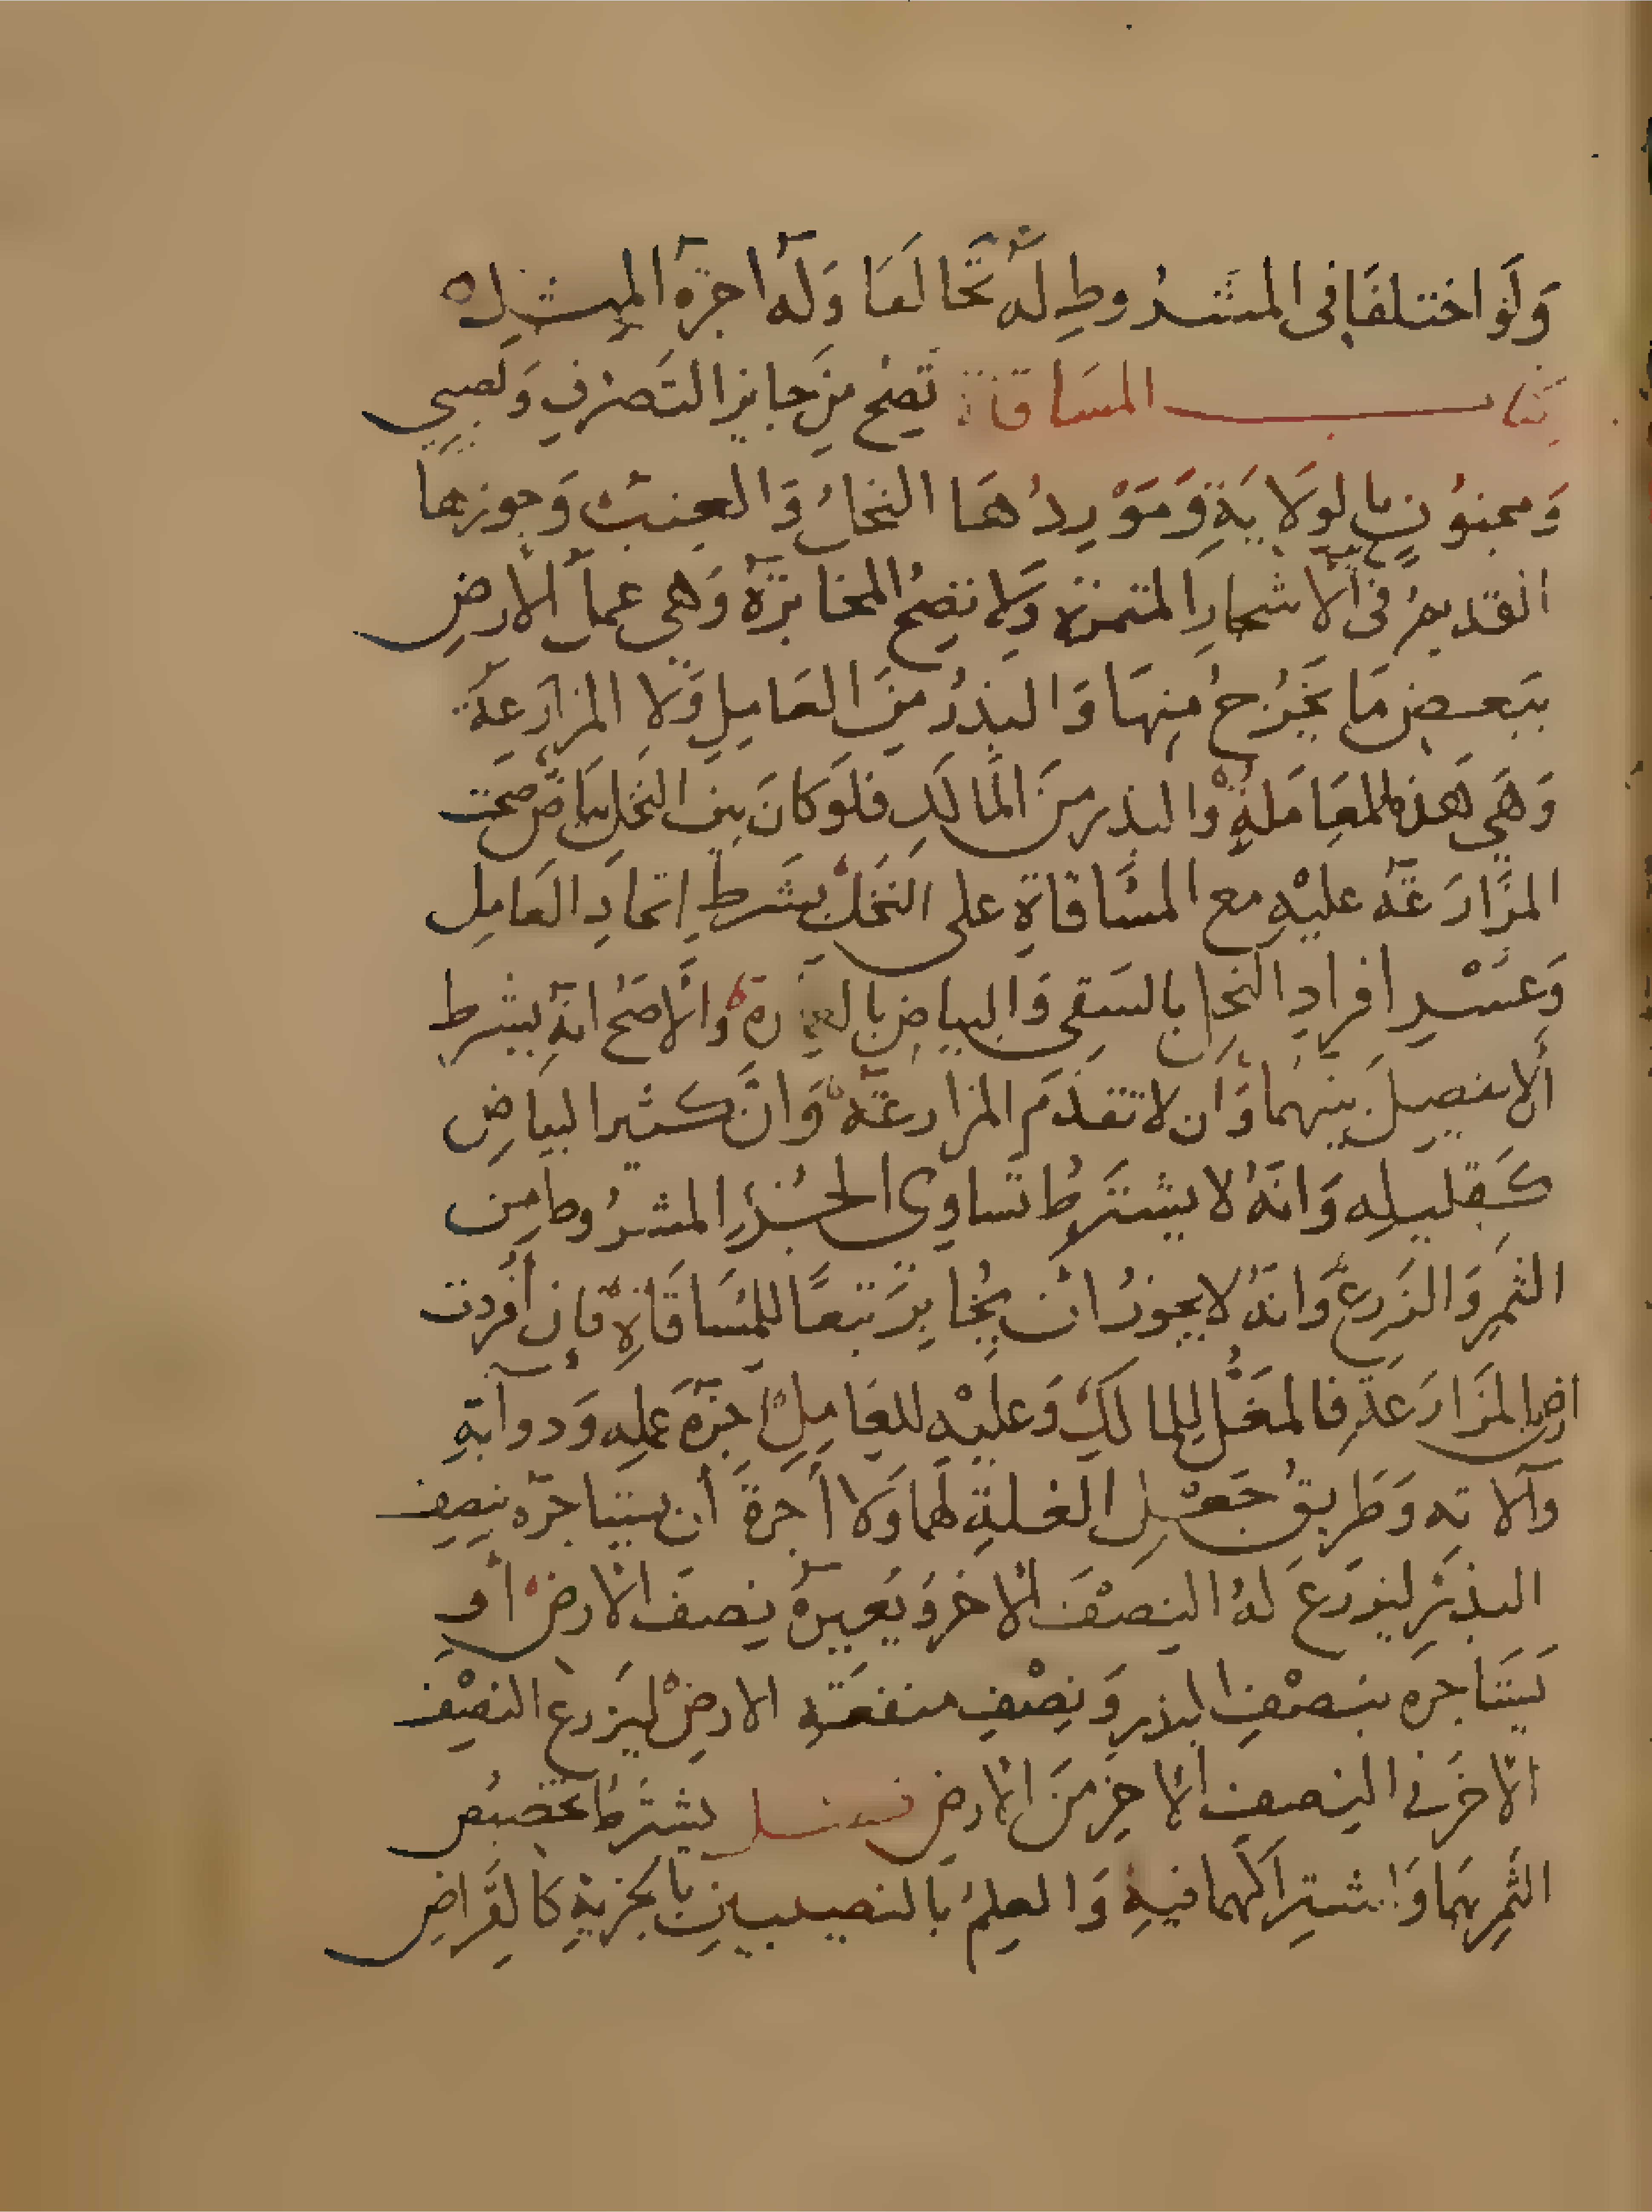 وَلَو اختلفَا فى المشروطِ لَهُ تَحَالَفَا وَلَهُ اجرَةُ المِثلِ ه
كتاب المسَاقاة تَصِحُّ مِن جايزِ التَصَرُفِ وَلِصَبِيٍ
وَمجنُونٍ بِالوِلَايَةِ وَمَوْرِدُهَا النخلُ وَالعِنَبُ وَجوزهَا
القديمُ فى الاشجارِ المثمرَةِ وَلَا تَصِحُّ المخابَرَةُ وَهى عملُ الارضِ
بِبَعضِ مَا يَخرُجُ مِنهَا وَالبَذرُ مِنَ العَامِلِ وَلَا المزَارَعَةُ
وَهىَ هَذِهِ المعَامَلةُ وَالبذر مِنَ المَالِكِ فلَو كَانَ بين النخل بيَاضٌ صحت
المزَارَعَةُ عليْهِ مع المسَاقاةِ على النَخلِ بِشَرطِ اتحادِ العَامِلِ
وَعُسْرِ افرادِ النخلِ بالسَقىِ وَالبياضِ بالعمارة وَالاصَحُ انهُ يشرط
ألا يفصِلَ بينهُمَا وَان لا تقدَم المزارعَةُ وَانَّ كَثير البيَاضِ
كَقليلِه وَانهُ لا يشترَطُ تَسَاوِى الجُزءِ المشرُوط مِن
الثمرِ وَالزرعِ وَانهُ لا يجوزُ ان يُخابِرَ تبعًا للمُسَاقَاةِ فان أُفردت
ارض بالمزَارَعَةِ فالمغَلُّ للمالكِ وَعليْهِ للعَامِلِ اجرَةُ عمِلِه وَدوآبهِ
وآلاتِه وَطَريقُ جَعْلِ الغلةِ لهمَا وَلا أُجرَةَ أن يستاجرَه بنصِف
البذرِ ليزرَعَ لهُ النِصْفَ الاخرَ وَيُعيرهُ نِصفَ الارضْ أو
يَستَاجره بنصْفِ البذر وَنِصْفِ منفعَةِ الارضْ ليَزرع النصْفَ
الاخَرَ فى النِصفِ الاخرِ مِنَ الارضِ فصل يشترَطُ تخصيصُ
الثمرِ بهمَا وَاشتِرَاكُهما فيهِ وَالعِلمُ بالنصيبينِ بالجزيةِ كَالقِرَاضِ